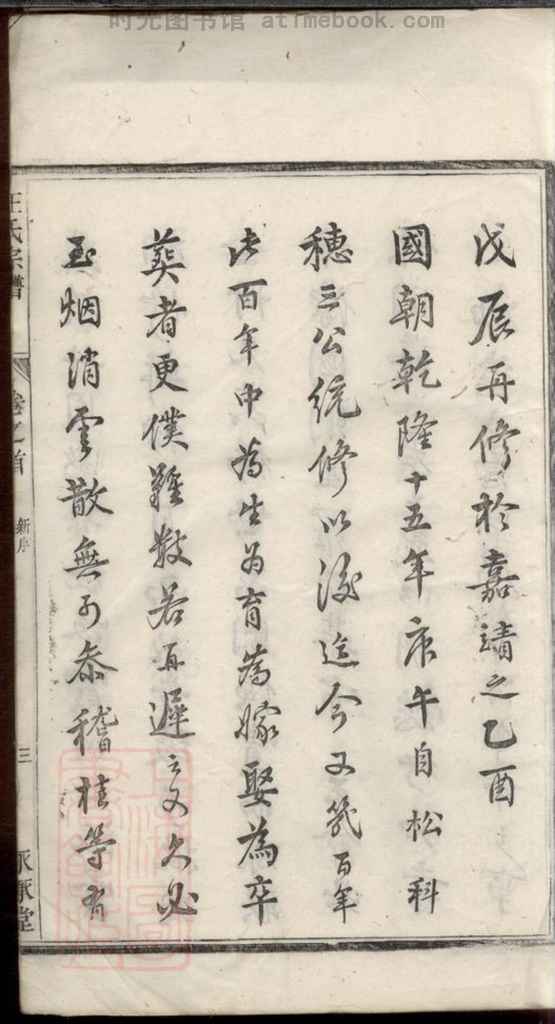 时光图书馆 atimebook.com
戊辰再修於嘉靖之乙酉
國朝乾隆十五年庚午自松科
穗三公統修以後迄今又幾百年
此百年中為生為育為嫁娶為卒
葬者更僕難數若再遲之又久必
至烟消雲散無可叅稽桂等有
王氏宗譜
卷之首
新序
三